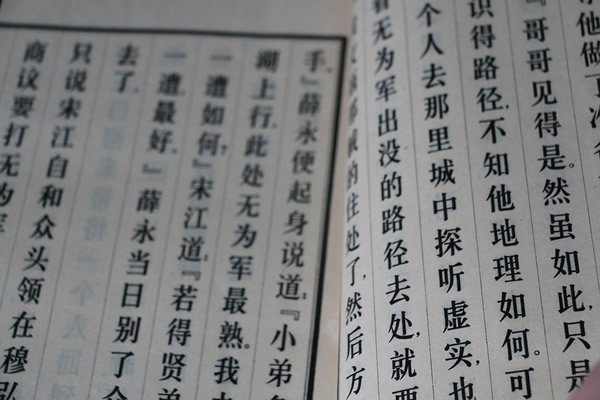 他做了
『哥哥见得是。然虽如此，只是
识得路径，不知他地理如何。可
个人去那里城中探听虚实，也
看无为军出没的路径去处，就要
的住处了，然后方
手。』薛永便起身说道：『小弟
湖上行。此处无为军最熟。我
一遭如何？』宋江道：『若得贤弟
一遭，最好。』薛永当日别了
去了。
只说宋江自和众头领在穆弘
商议要打无为军